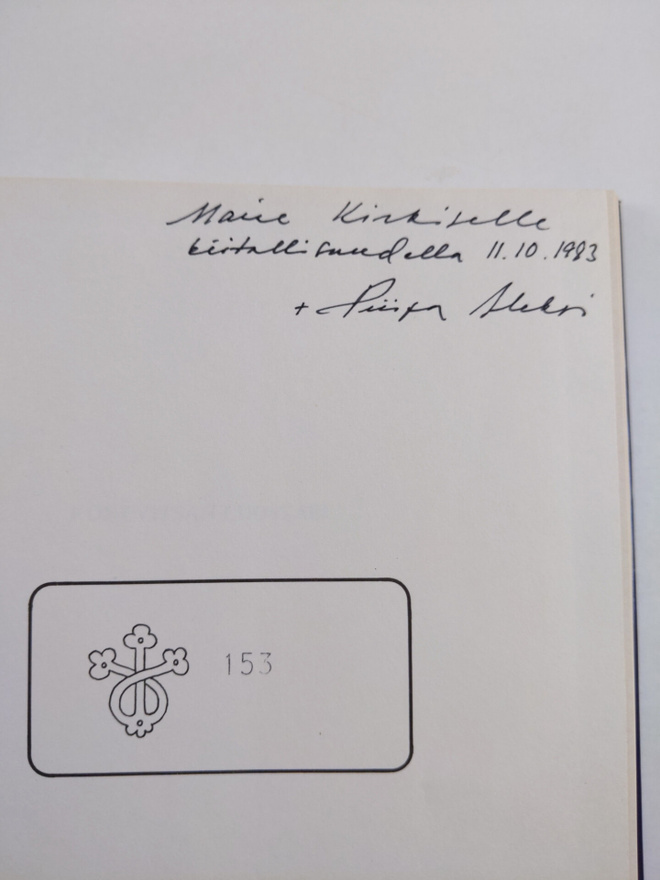 Maire Kirkiselle
kiitollisuudella 11.10.1983
+ Piispa Aleksi
153